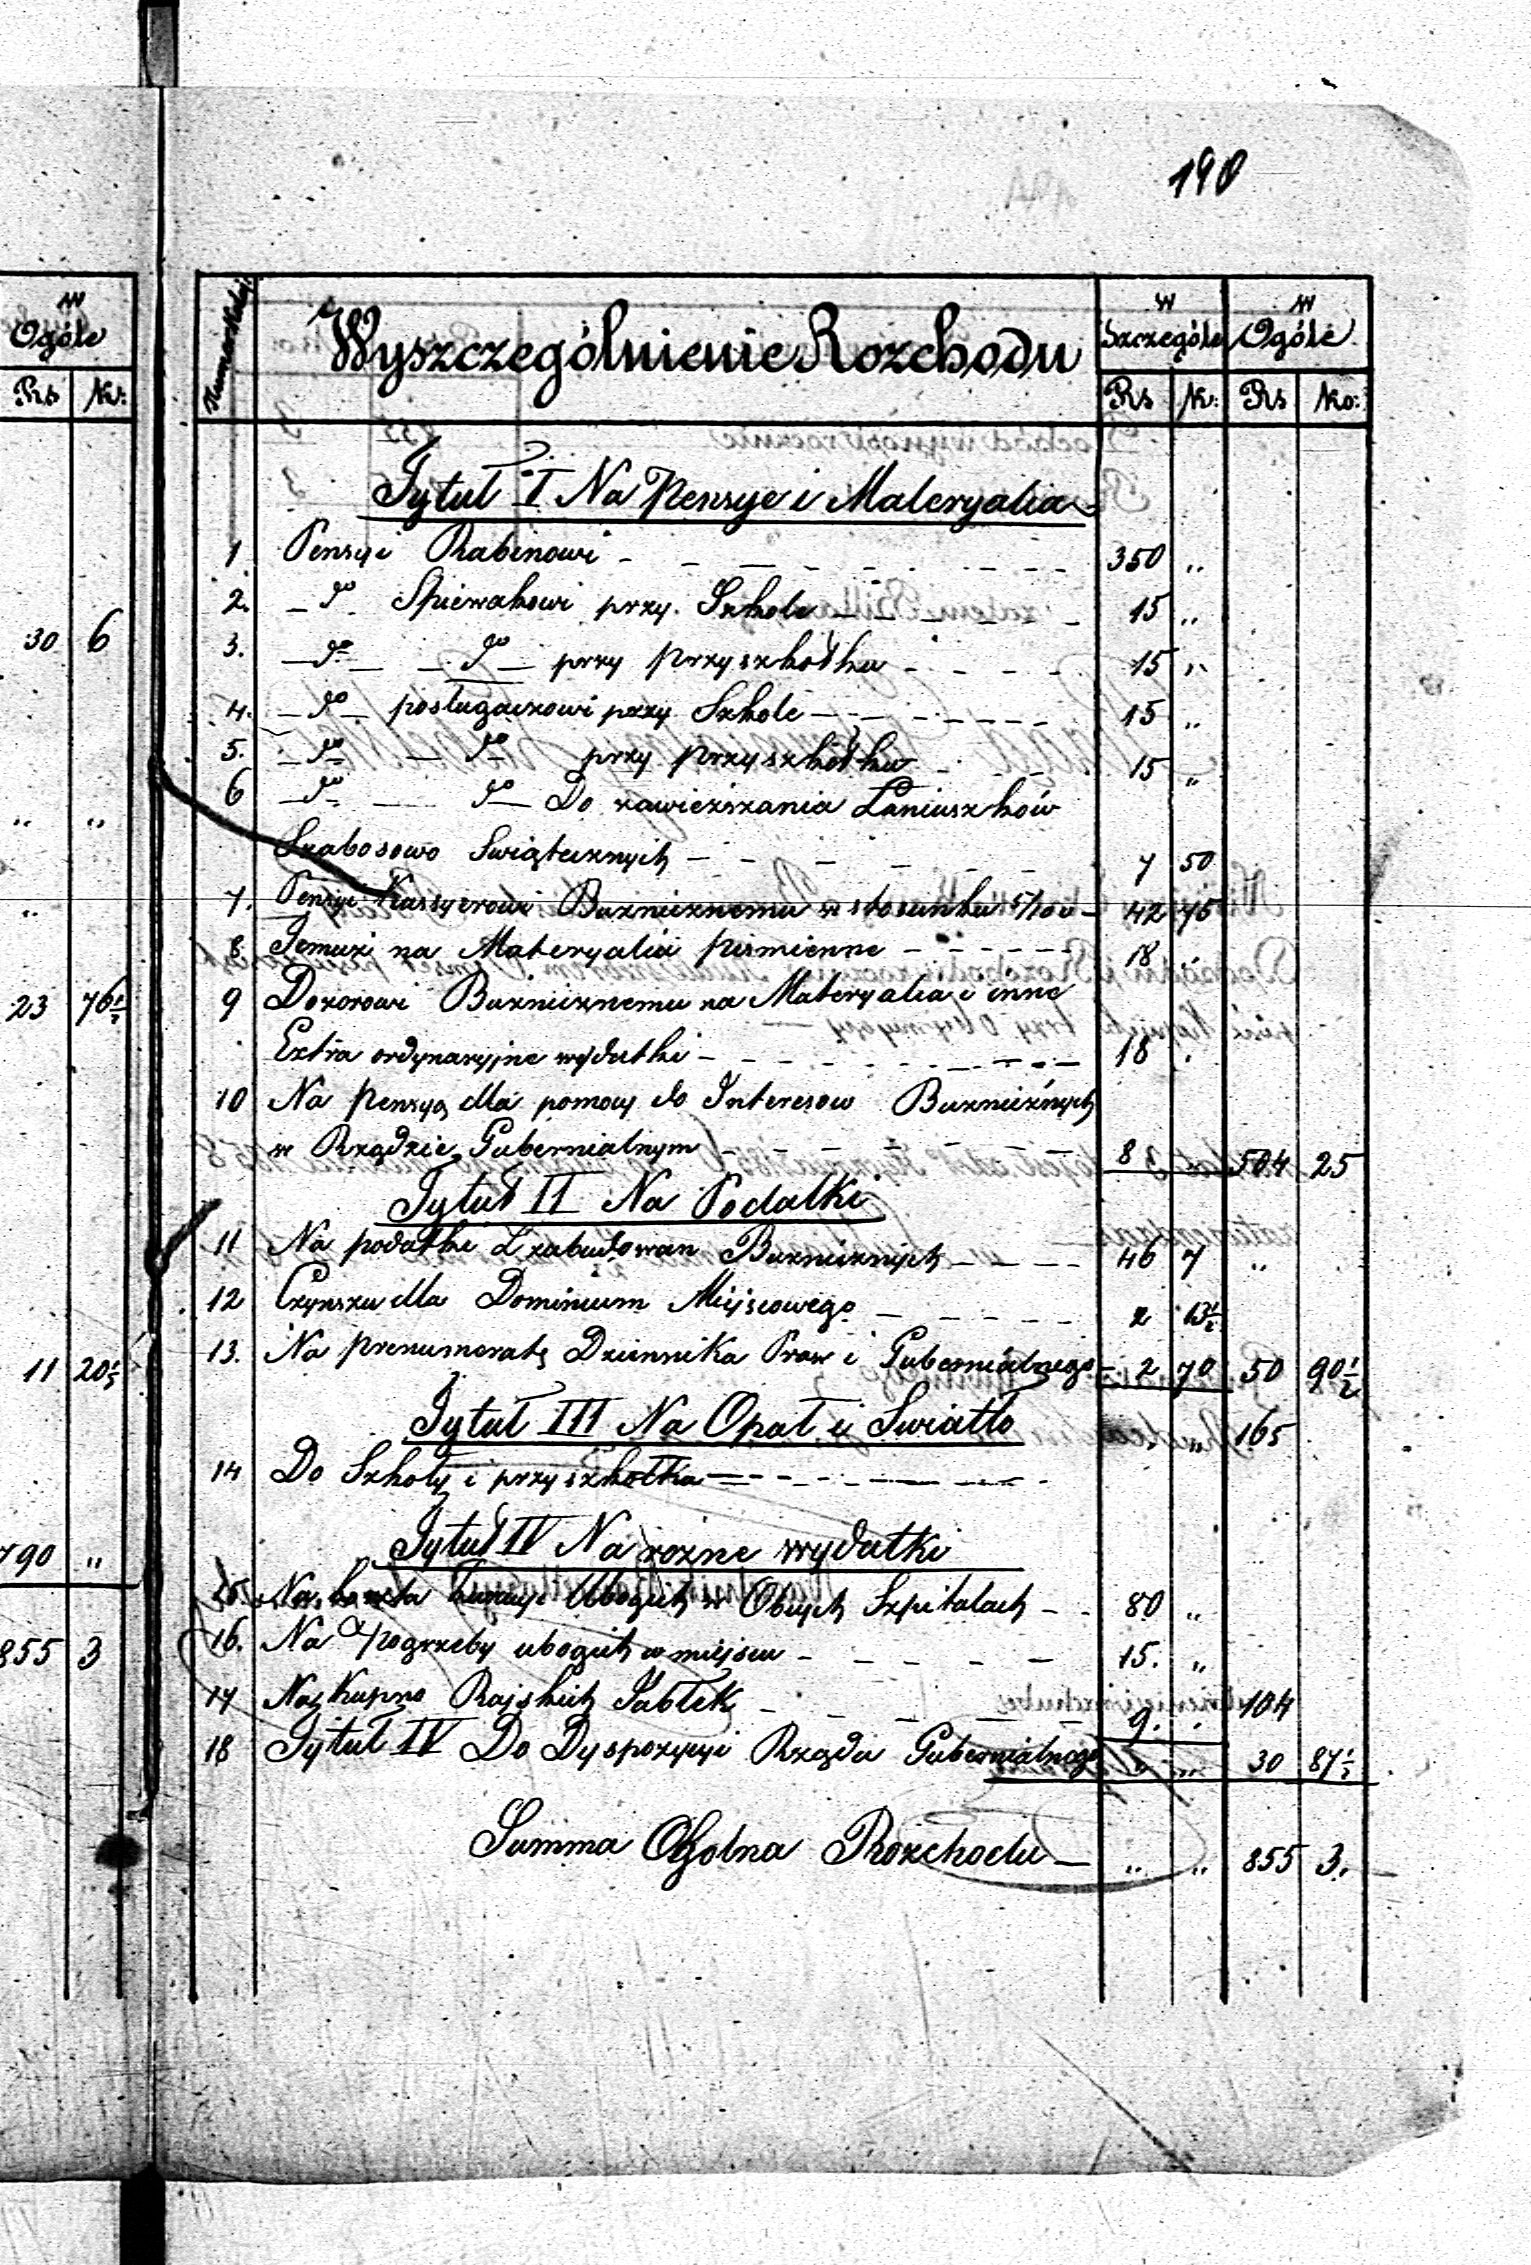 190
W Ogóle
Rs K:
30 6
" "
"
23 76½
11 20½
790 "
855 3
Numer Kolej: Wyszczególnienie Rozchodu W Szczególe W Ogóle
Rs K: Rs Ko:
Tytuł I Na Pensye i Materyalia
1 Pensyi Rabinowi 350 "
2. do Spiewakowi przy Szkole 15 "
3. do do przy przyszkołku 15 "
4. do posługaczowi przy Szkole 15 "
5. do do przy przyszkołku 15 "
6 do do Do zawieszania Łaniuszków
Szabosowo Swiątecznych 7 50
7. Pensyi Kassyerowi Bużnicznemu w stosunku 5/100 42 75
8. Temuzi na Materyalia pismienne 18 "
9 Dozorowi Bużnicznemu na Materyalia i inne
Extra ordynaryjne wydatki 18 "
10 Na Pensyą dla pomocy do Interesow Bużnicznych
w Rządzie Gubernialnym 8 " 504 25
Tytuł II Na Podatki
11 Na podatki Z zabudowan Bużnicznych 46 7 "
12 Czynszu dla Dominium Miejscowego 2 13½
13. Na prenumeratę Dziennika Praw i Gubernialnego 2 70 50 90½
Tytuł III Na Opał i Swiatło " " 165
14 Do Szkoły i przyszkołka
Tytuł IV Na rożne wydatki
15. Na koszta kuracyi Ubogich w Obcych Szpitalach 80 "
16. Na pogrzeby ubogich w miejscu 15. "
17 Na kupno Rajskich Jabłek 9. . 104
18 Tytuł IV Do Dyspozycyi Rządu Gubernialnego " " 30 87½
Summa Ogolna Rozchodu " " 855 3.